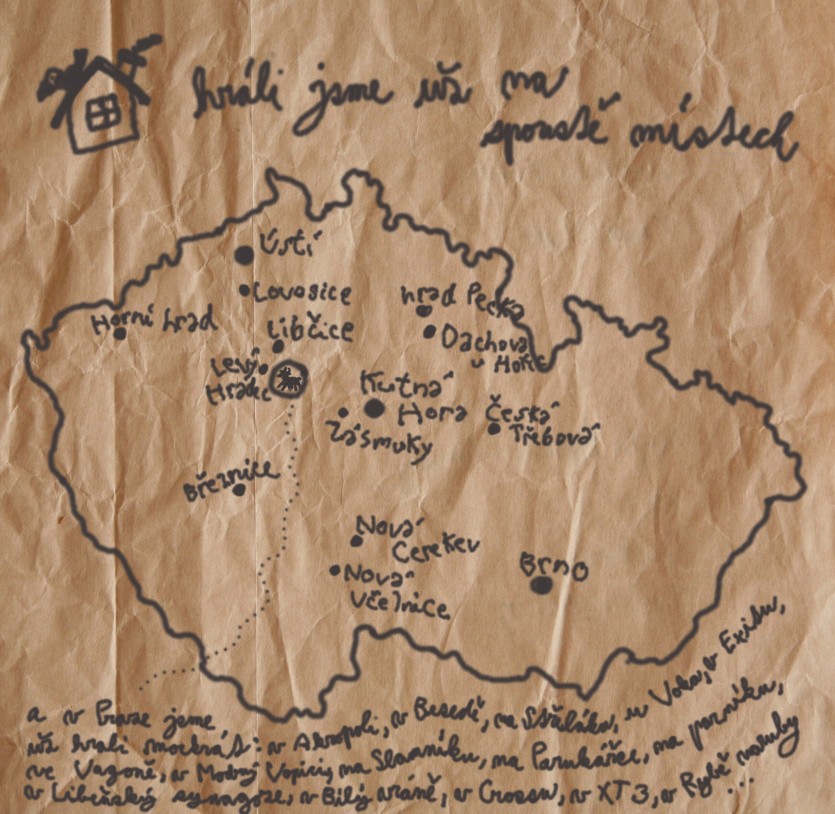 hráli jsme už na
spoustě místech
Ústí
Lovosice
hrad Pecka
Horní hrad
Libčice
Dachova
u Hořic
Levý
Hradec
Kutná
Hora
Česká
Třebová
Zásmuky
Březnice
Nová
Cerekev
Brno
Nová
Včelnice
a v Praze jsme
už hráli mockrát: v Akropoli, v Besedě, na Střeláku, u Voka, v Exitu,
ve Vagoně, v Modrý Vopici, na Slamníku, na Parukářce, na parníku,
v Libeňský synagoze, v Bílý vráně, v Crossu, v XT3, v Rybě naruby
...